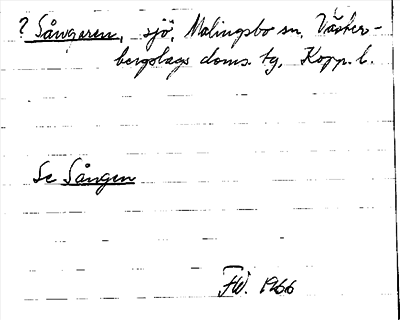 ? Sångaren, sjö, Malingsbo sn, Väster-
bergslags doms. tg, Kopp. l.
Se Sången
FW. 1966